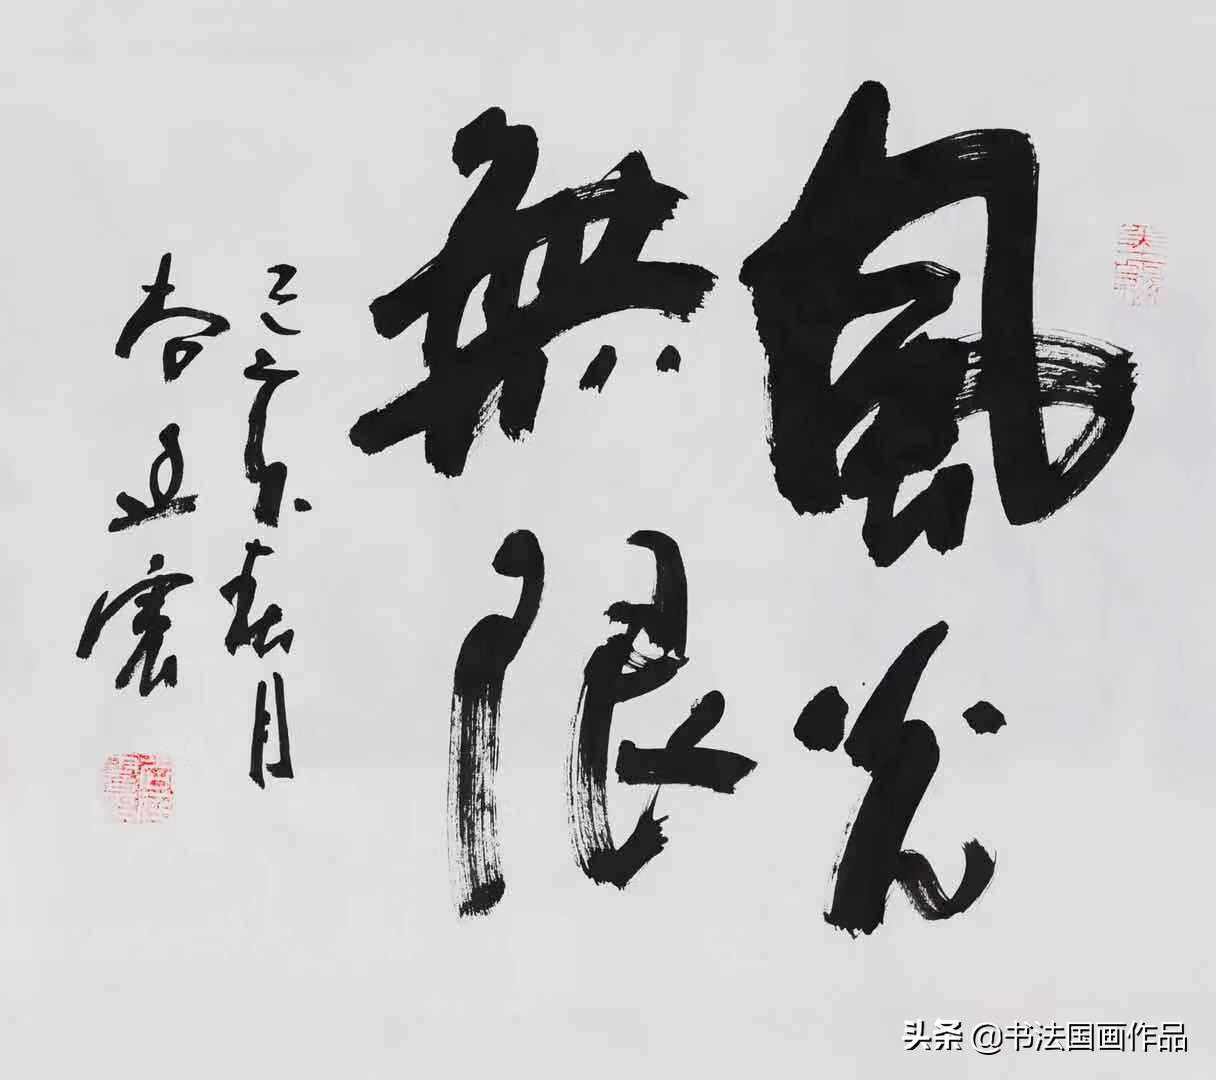 風光
無限
己亥春月
头条 @书法国画作品